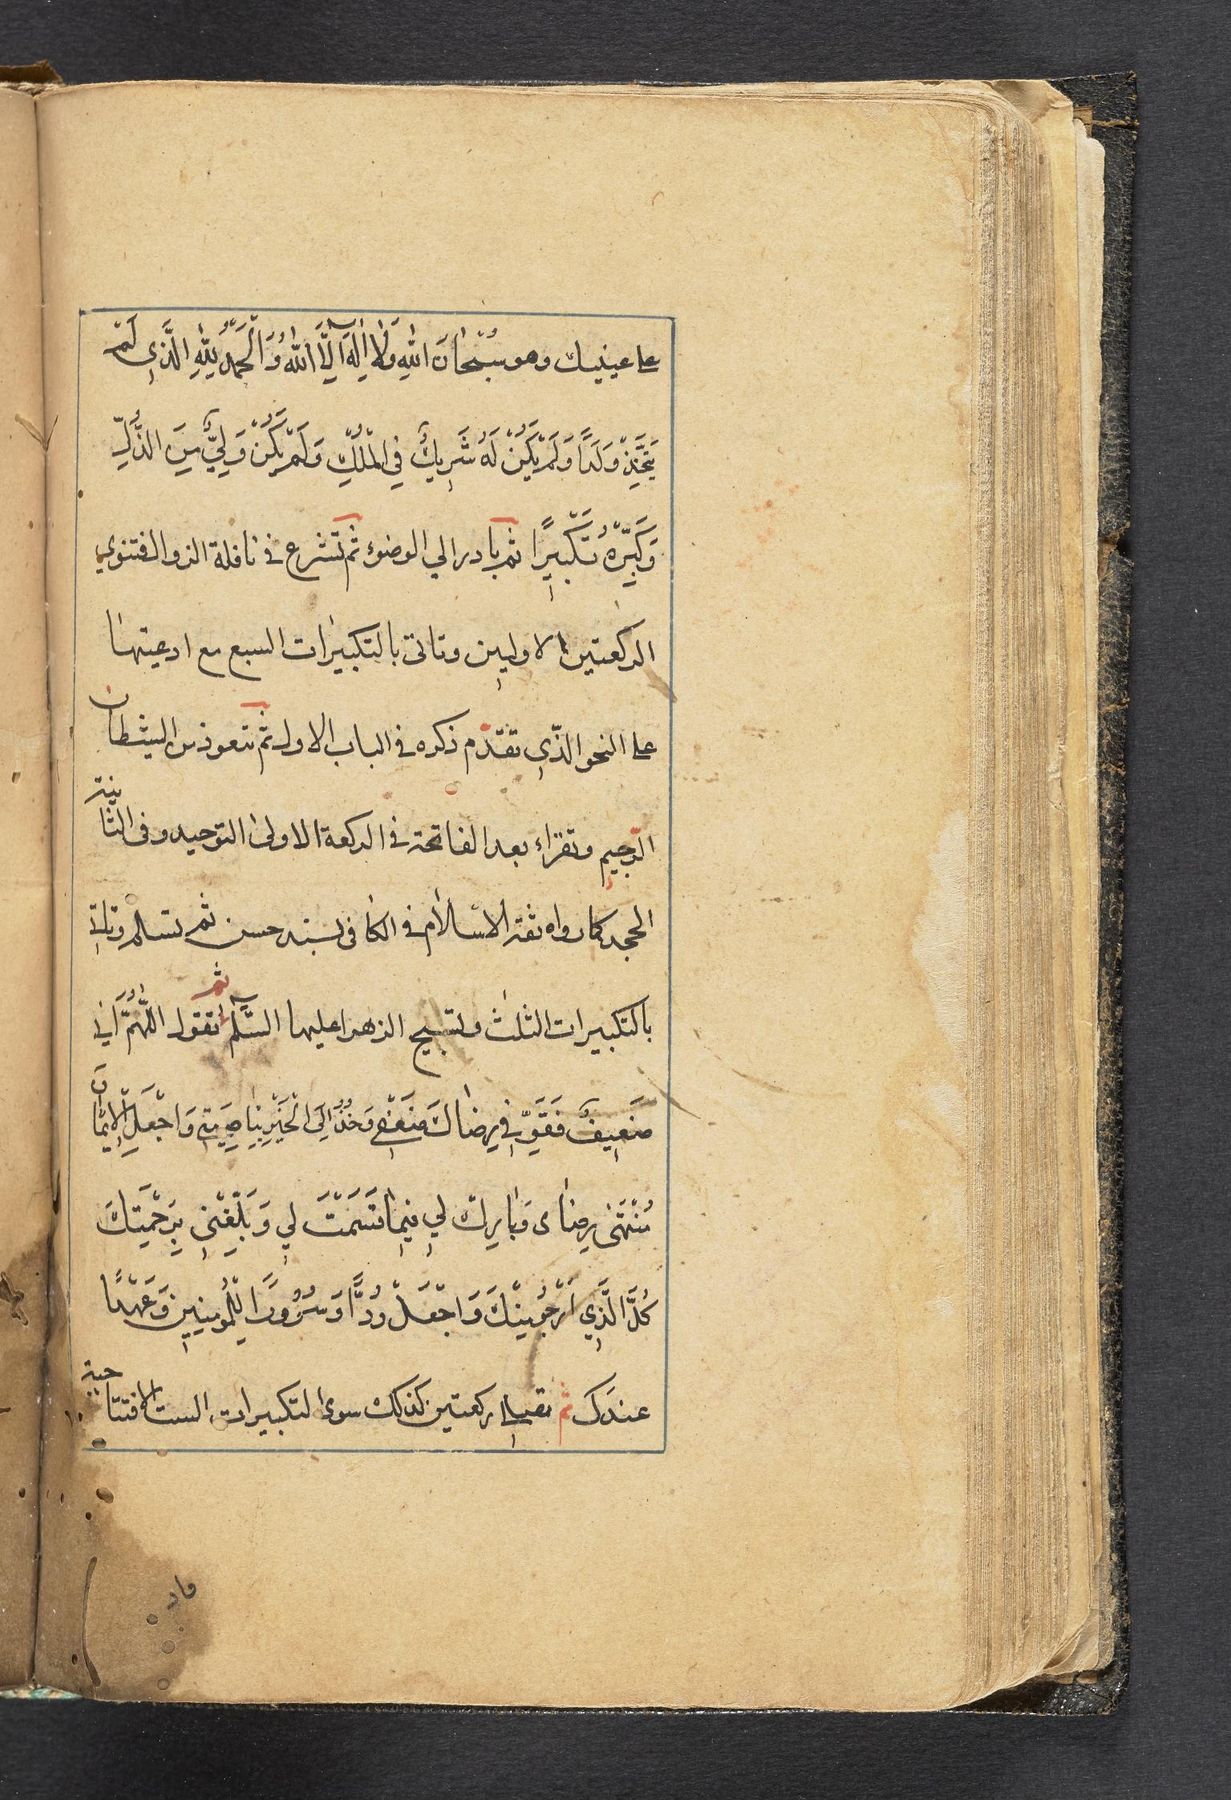 على عينيك وهو سُبْحَانَ اللهِ وَلَا اِلٰهَ اِلَّا اللهُ وَالْحَمْدُ لِلّٰهِ الَّذِي لَمْ
يَتَّخِذْ وَلَدًا وَلَمْ يَكُنْ لَهُ شَرِيكٌ فِي الْمُلْكِ وَلَمْ يَكُنْ وَلِيٌّ مِنَ الذُّلِّ
وَكَبِّرْهُ تَكْبِيرًا ثم بادر الي الوضوء ثم تشرع في نافلة الزوال فتنوي
الركعتين الاوليين وتاتي بالتكبيرات السبع مع ادعيتها
على النحو الذّي تقدّم ذكره في الباب الاول ثم تتعوذ من الشيطان
الرّجيم وتقراء بعد الفاتحة في الركعة الاولى التوحيد وفي الثانية
الجحد كما رواه ثقة الاسلام في الكافي بسند حسن ثم تسلم وتاتي
بالتكبيرات الثلث وتسبيح الزهرا عليها السَّلٰم ثم تقول اللّٰهُمَّ اِنّي
ضَعِيفٌ فَقَوِّ فِي رِضَاكَ ضَعْفِي وَخُذْ اِلَى الْخَيْرِ بِنَاصِيَتِي وَاجْعَلِ الْاِيمَانَ
مُنْتَهَى رِضَاى وَبَارِكْ لِي فِيمَا قَسَمْتَ لِي وَبَلِّغْنِي بِرَحْمَتِكَ
كُلَّ الَّذِي اَرْجُو مِنْكَ وَاجْعَلْ وُدًّا وَسُرُورًا لِلْمُؤمِنِينَ وَعَهْدًا
عندَكَ ثم تصلي ركعتين كذلك سوى التكبيرات الست الافتتاحية